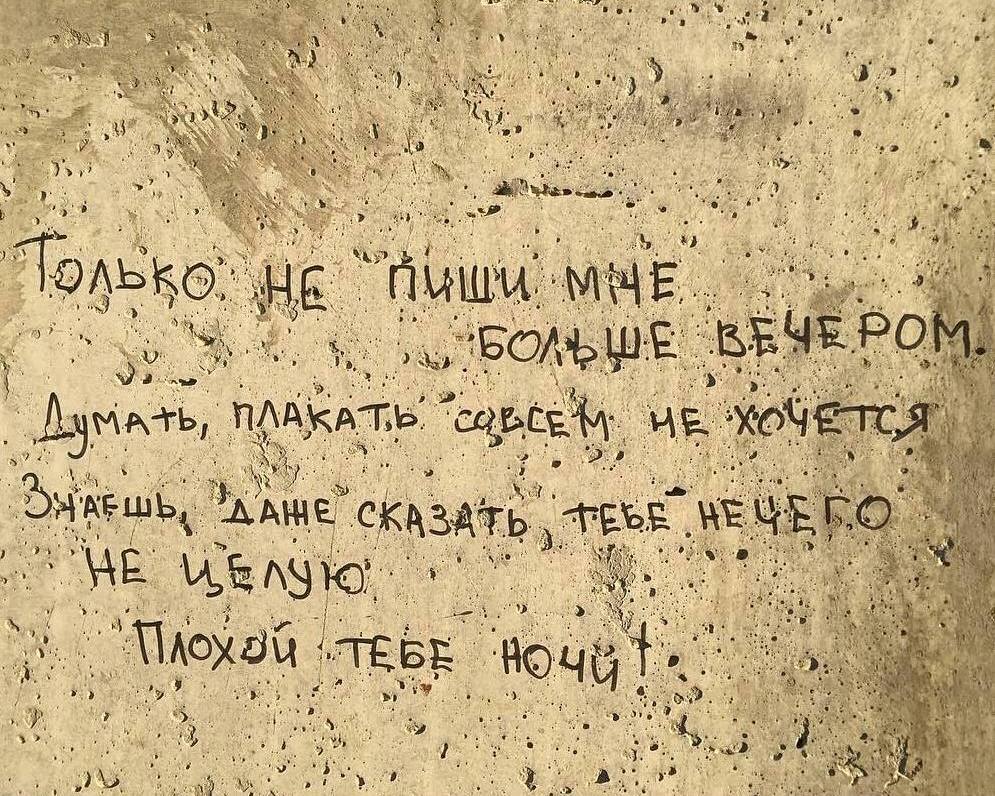 Только не пиши мне
больше вечером.
Думать, плакать совсем не хочется
Знаешь, даже сказать тебе нечего
не целую
Плохой тебе ночи!